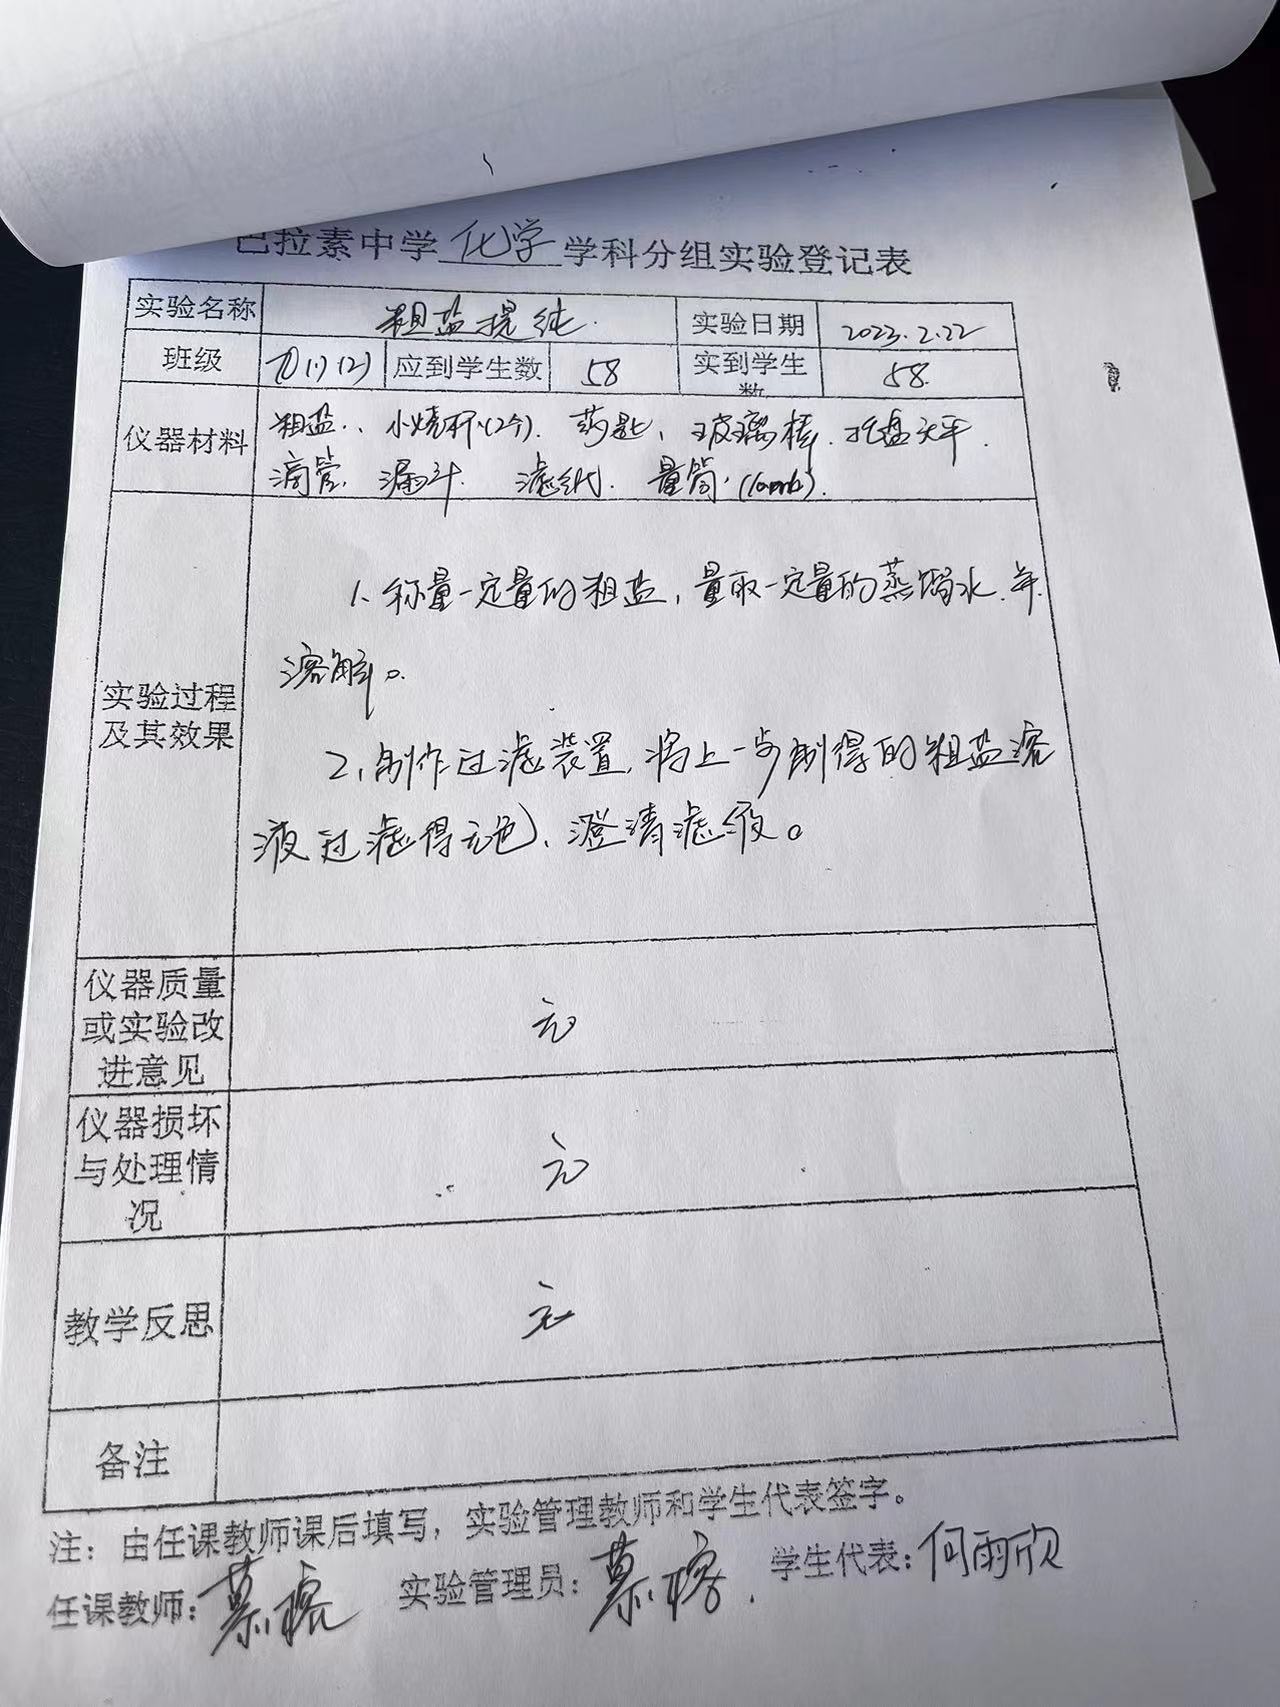 巴拉素中学 化学 学科分组实验登记表
实验名称 粗盐提纯 实验日期 2023.2.22
班级 九(1)(2) 应到学生数 58 实到学生数 58
仪器材料 粗盐、小烧杯(2个)、药匙、玻璃棒、托盘天平、
滴管、漏斗、滤纸、量筒
实验过程及其效果
1、称量一定量的粗盐,量取一定量的蒸馏水,并
溶解。
2、制作过滤装置,将上一步制得的粗盐溶
液过滤得无色、澄清滤液。
仪器质量或实验改进意见 无
仪器损坏与处理情况 无
教学反思 无
备注
注:由任课教师课后填写,实验管理教师和学生代表签字。
任课教师: 实验管理员: 学生代表:何雨欣